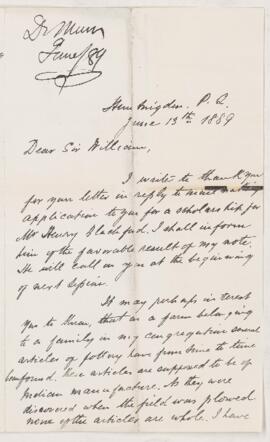 Dr Muir
June/89
Huntingdon. P. Q.
June 13th 1889
Dear Sir William,
I write to thank you
for your letter in reply to mine making
application to you for a scholarship for
Mr Henry Blachford. I shall inform
him of the favorable result of my note.
He will call on you at the beginning
of next Session.
It may perhaps interest
you to know, that on a farm belonging
to a family in my congregation several
articles of pottery have from time to time
been found. These articles are supposed to be of
Indian manufacture. As they were
discovered when the field was plowed
none of the articles are whole. I have